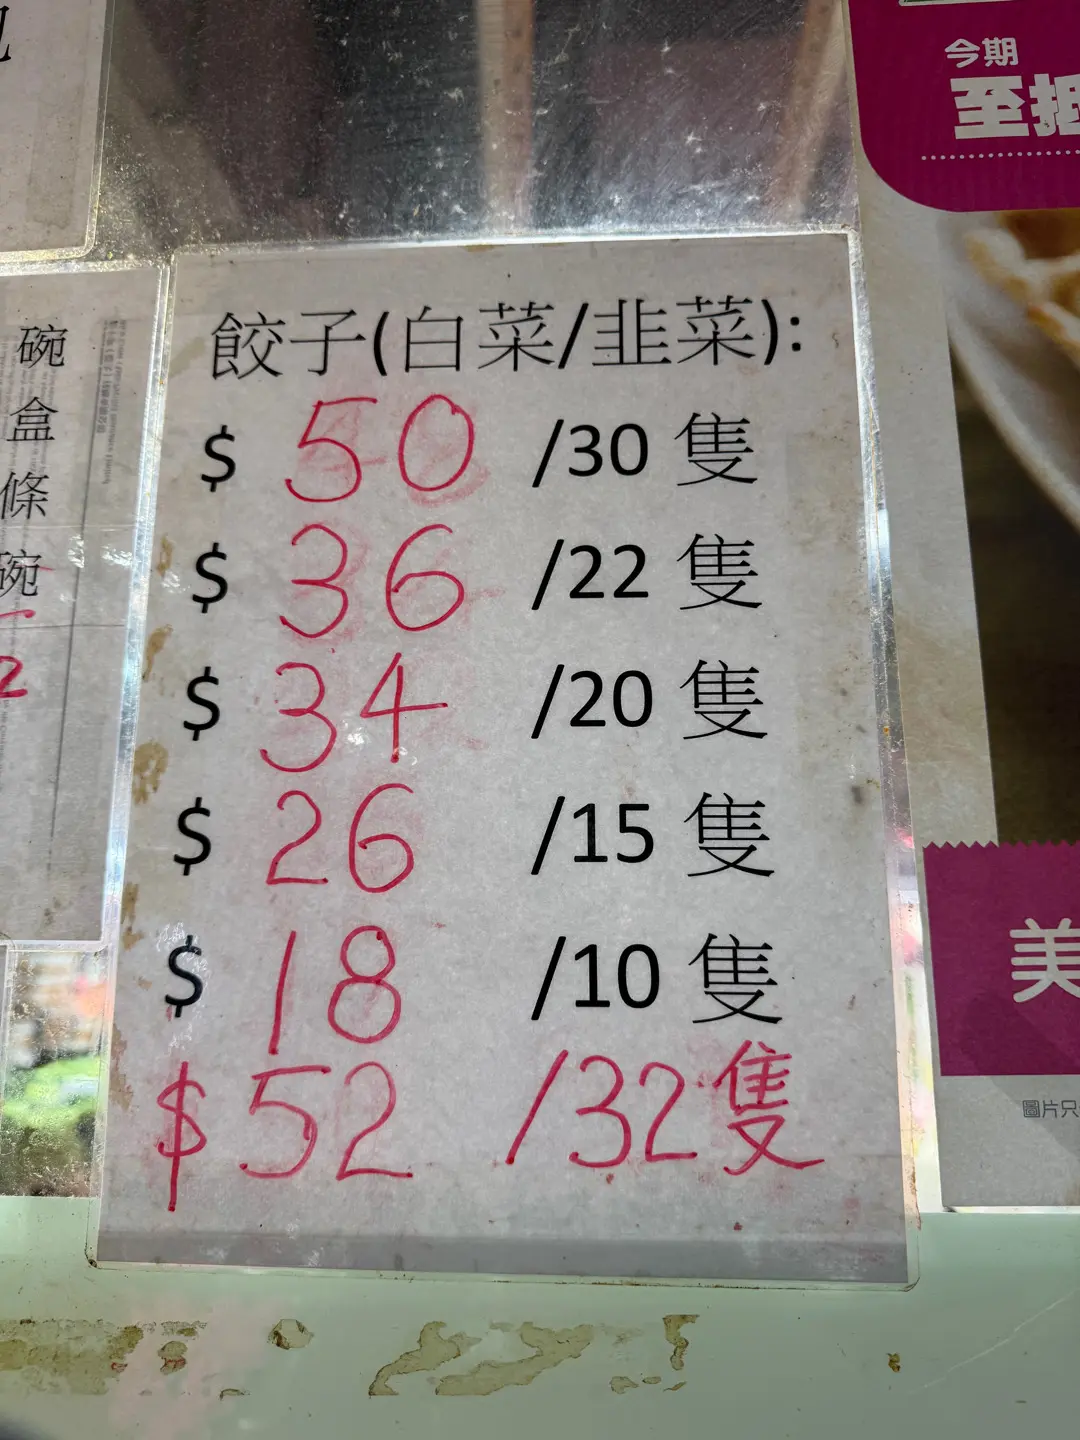 餃子(白菜/韭菜):
$ 50 /30 隻
$ 36 /22 隻
$ 34 /20 隻
$ 26 /15 隻
$ 18 /10 隻
$52 /32隻
碗
盒
條
碗
2
今期
至抵
美
圖片只